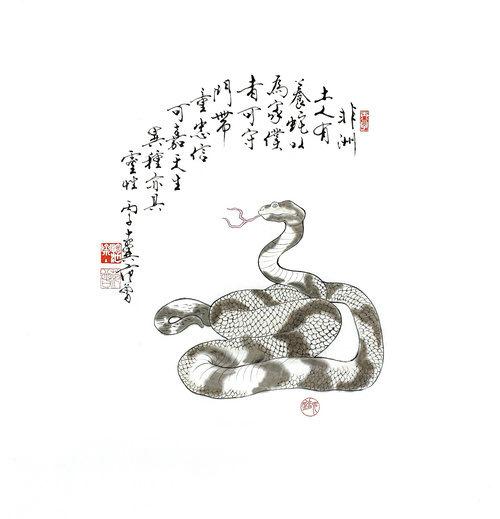 非洲
土人有
養蛇以
為家僕
者可守
門帶
童忠信
可嘉天生
異種亦具
靈性 丙子十翼范曾